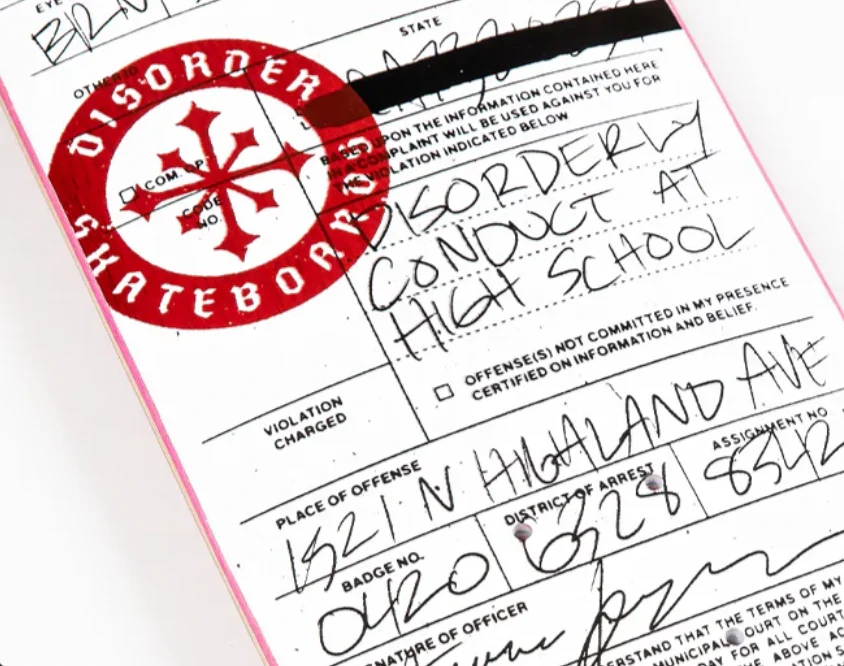 EYE
BRN
STATE
OTHER ID
DISORDER
SKATEBOARDS
BASED UPON THE INFORMATION CONTAINED HERE
IN A COMPLAINT WILL BE USED AGAINST YOU FOR
THE VIOLATION INDICATED BELOW
COM.
CODE
NO.
DISORDERLY
CONDUCT AT
HIGH SCHOOL
OFFENSE(S) NOT COMMITTED IN MY PRESENCE
CERTIFIED ON INFORMATION AND BELIEF.
VIOLATION
CHARGED
PLACE OF OFFENSE
1521 N HIGHLAND AVE
BADGE NO.
0420
DISTRICT OF ARREST
6328
ASSIGNMENT NO
8342
SIGNATURE OF OFFICER
THAT THE TERMS OF MY
MUNICIPAL COURT ON THE
FOR ALL COURT
ABOVE